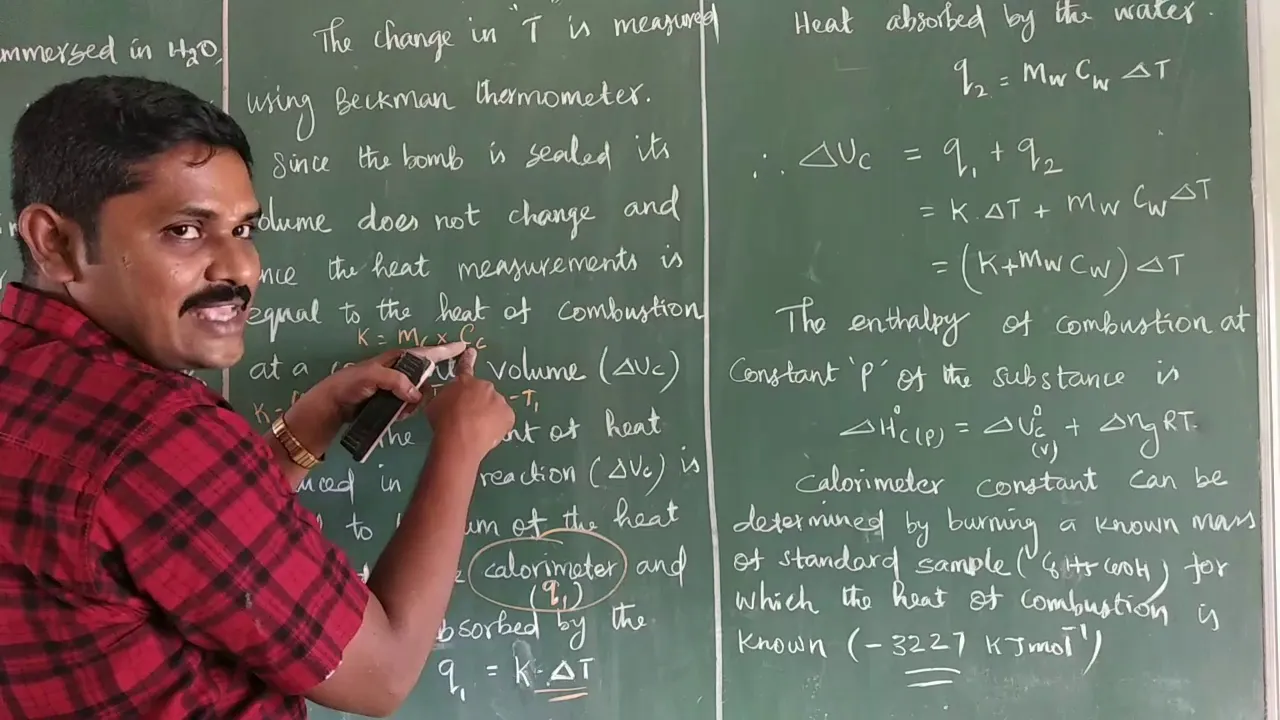 mmersed in H₂O,
The change in "T" is measured
using Beckman thermometer.
Since the bomb is sealed its
olume does not change and
nce the heat measurements is
equal to the heat of combustion
K = Mc × Cc
at a volume (ΔUc)
- T₁
of heat
uced in reaction (ΔUc) is
to um of the heat
calorimeter and
(q₁)
bsorbed by the
q₁ = K·ΔT
Heat absorbed by the water.
q₂ = Mw Cw ΔT
∴ ΔUc = q₁ + q₂
= K·ΔT + Mw Cw ΔT
= (K+Mw Cw) ΔT
The enthalpy of combustion at
Constant 'P' of the substance is
ΔH°c(P) = ΔU°c(V) + ΔngRT.
Calorimeter constant can be
determined by burning a known mass
of standard sample (C₆H₅COOH) for
which the heat of combustion is
known (-3227 KJmol⁻¹)